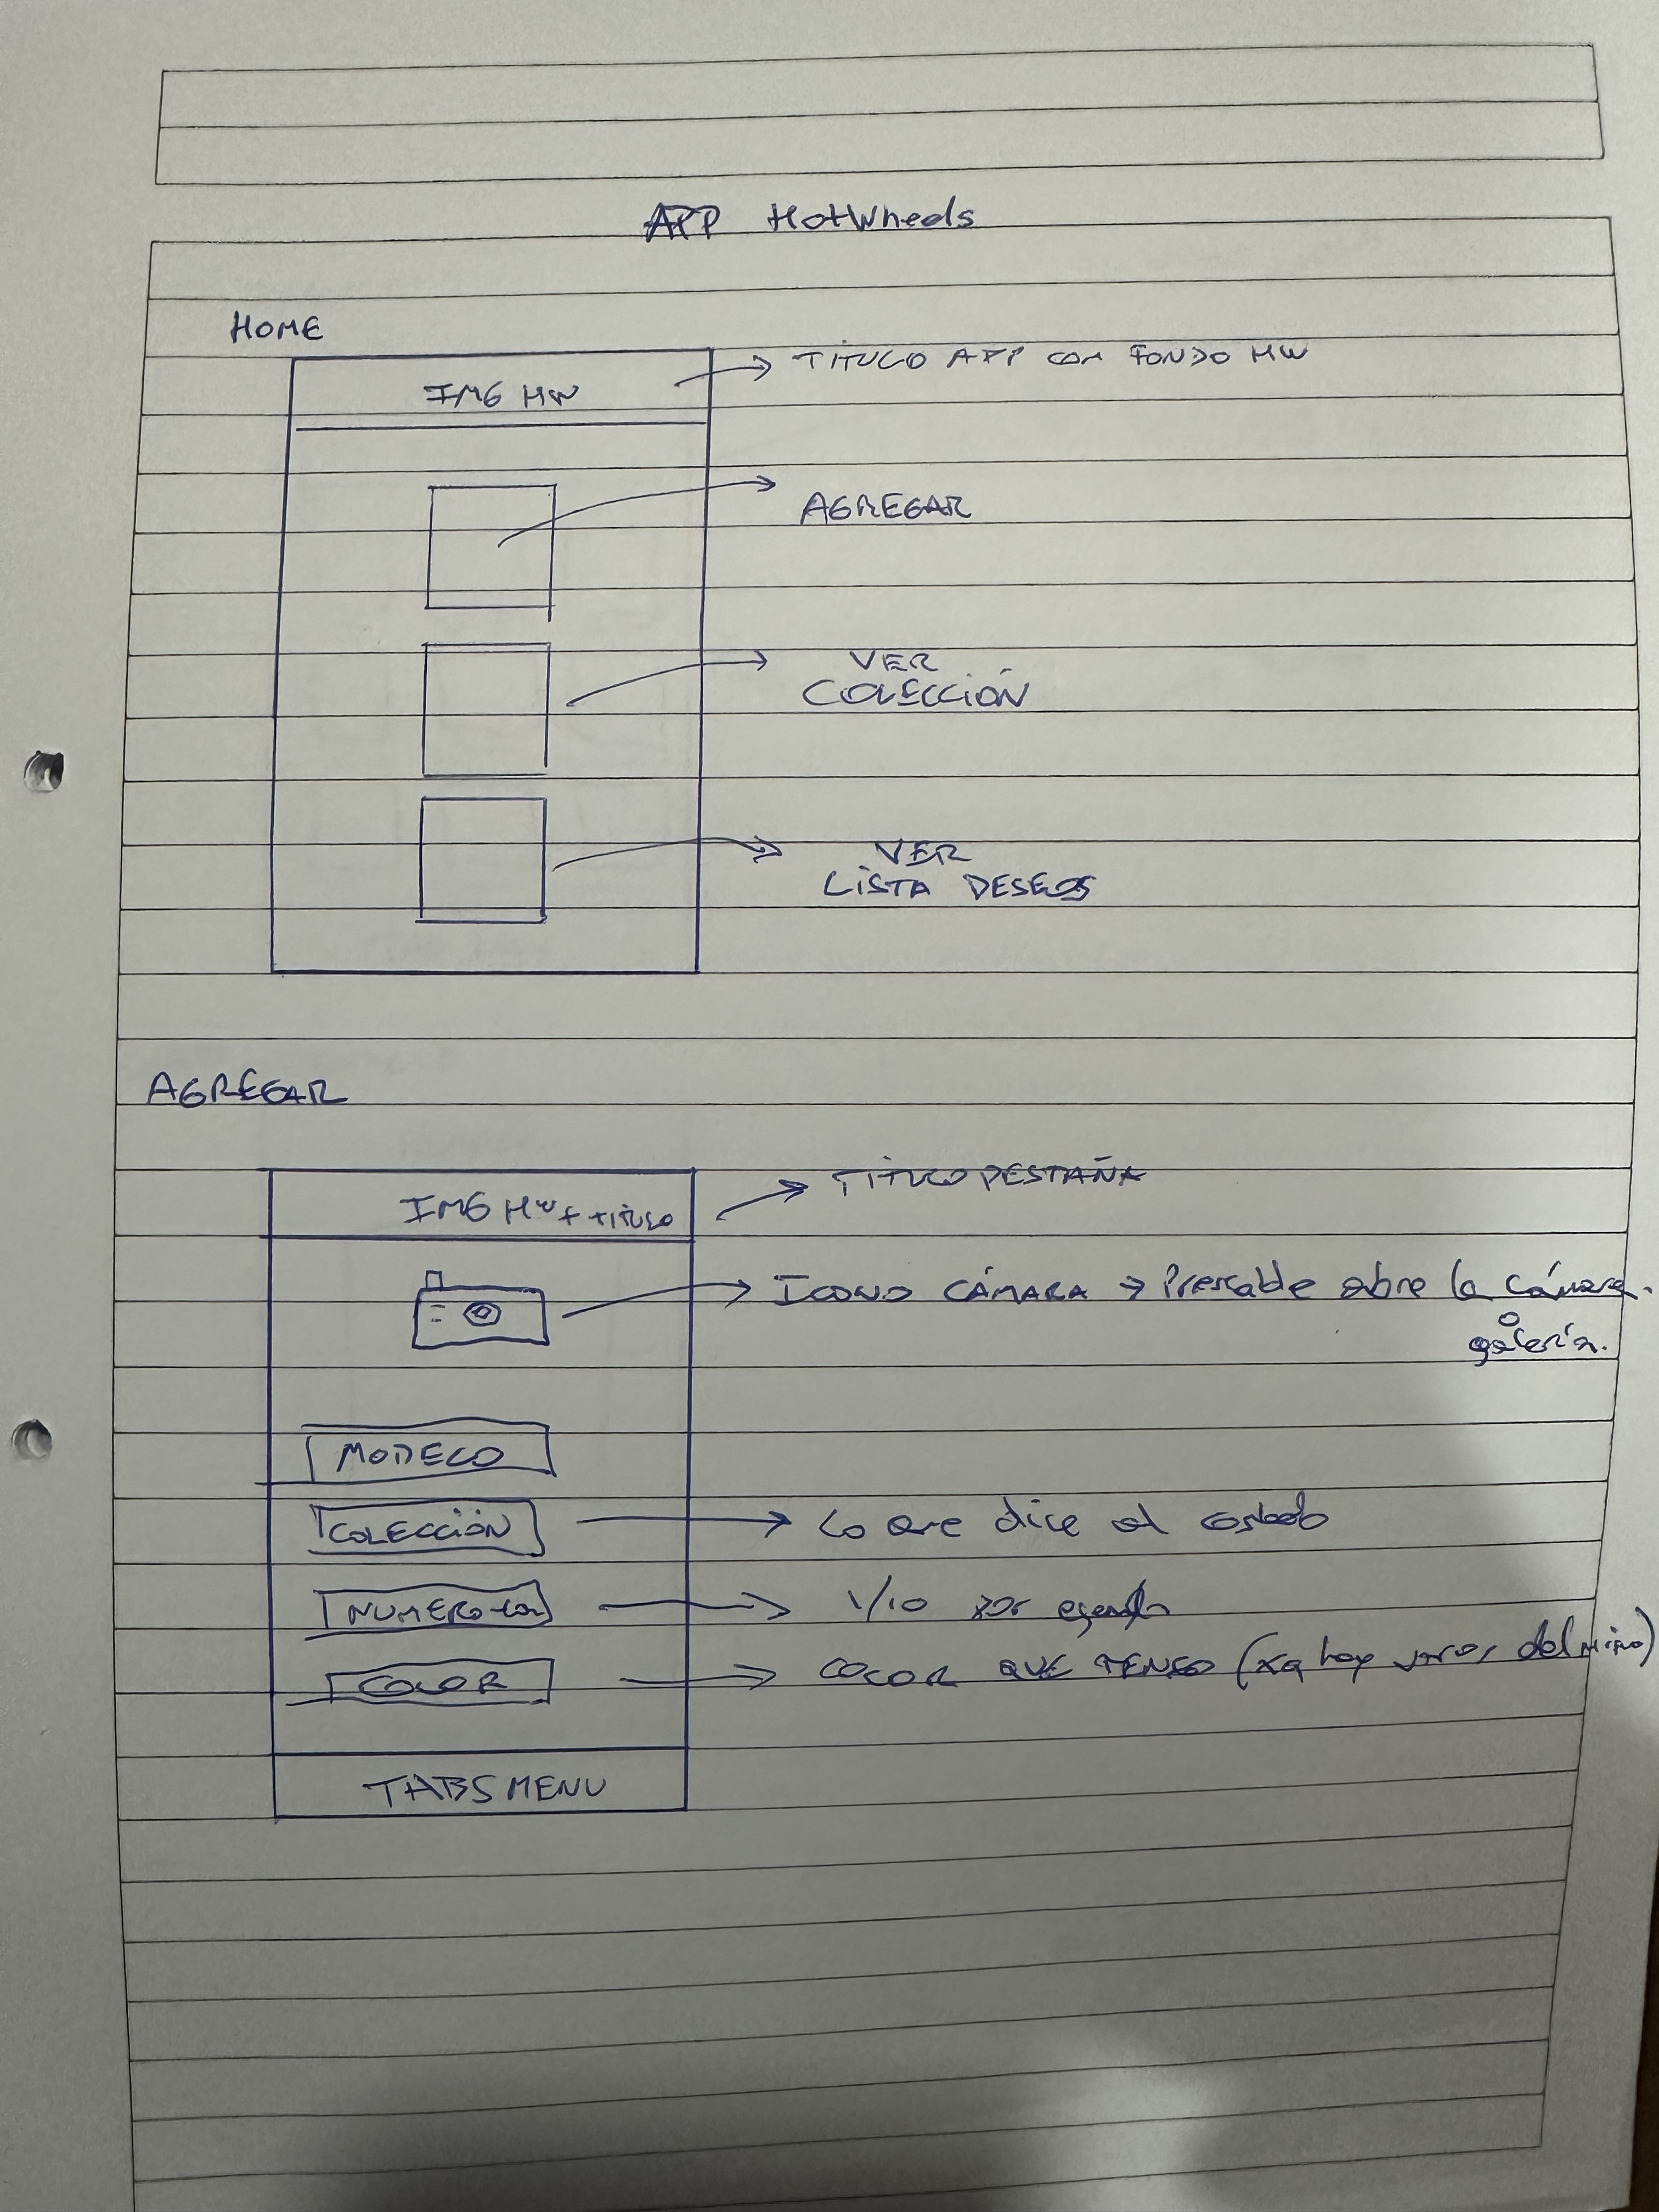 APP HotWheels
HOME
IMG HW
TÍTULO APP CON FONDO HW
AGREGAR
VER
COLECCIÓN
VER
LISTA DESEOS
AGREGAR
IMG HW + TíTULO
TÍTULO PESTAÑA
ICONO CÁMARA → Presable abre la cámara.
o
galería.
MODELO
COLECCIÓN
Lo que dice al costado
NUMERO
1/10 por ejemplo
COLOR
COLOR QUE TENGO (xq hay varios del mismo)
TABS MENU